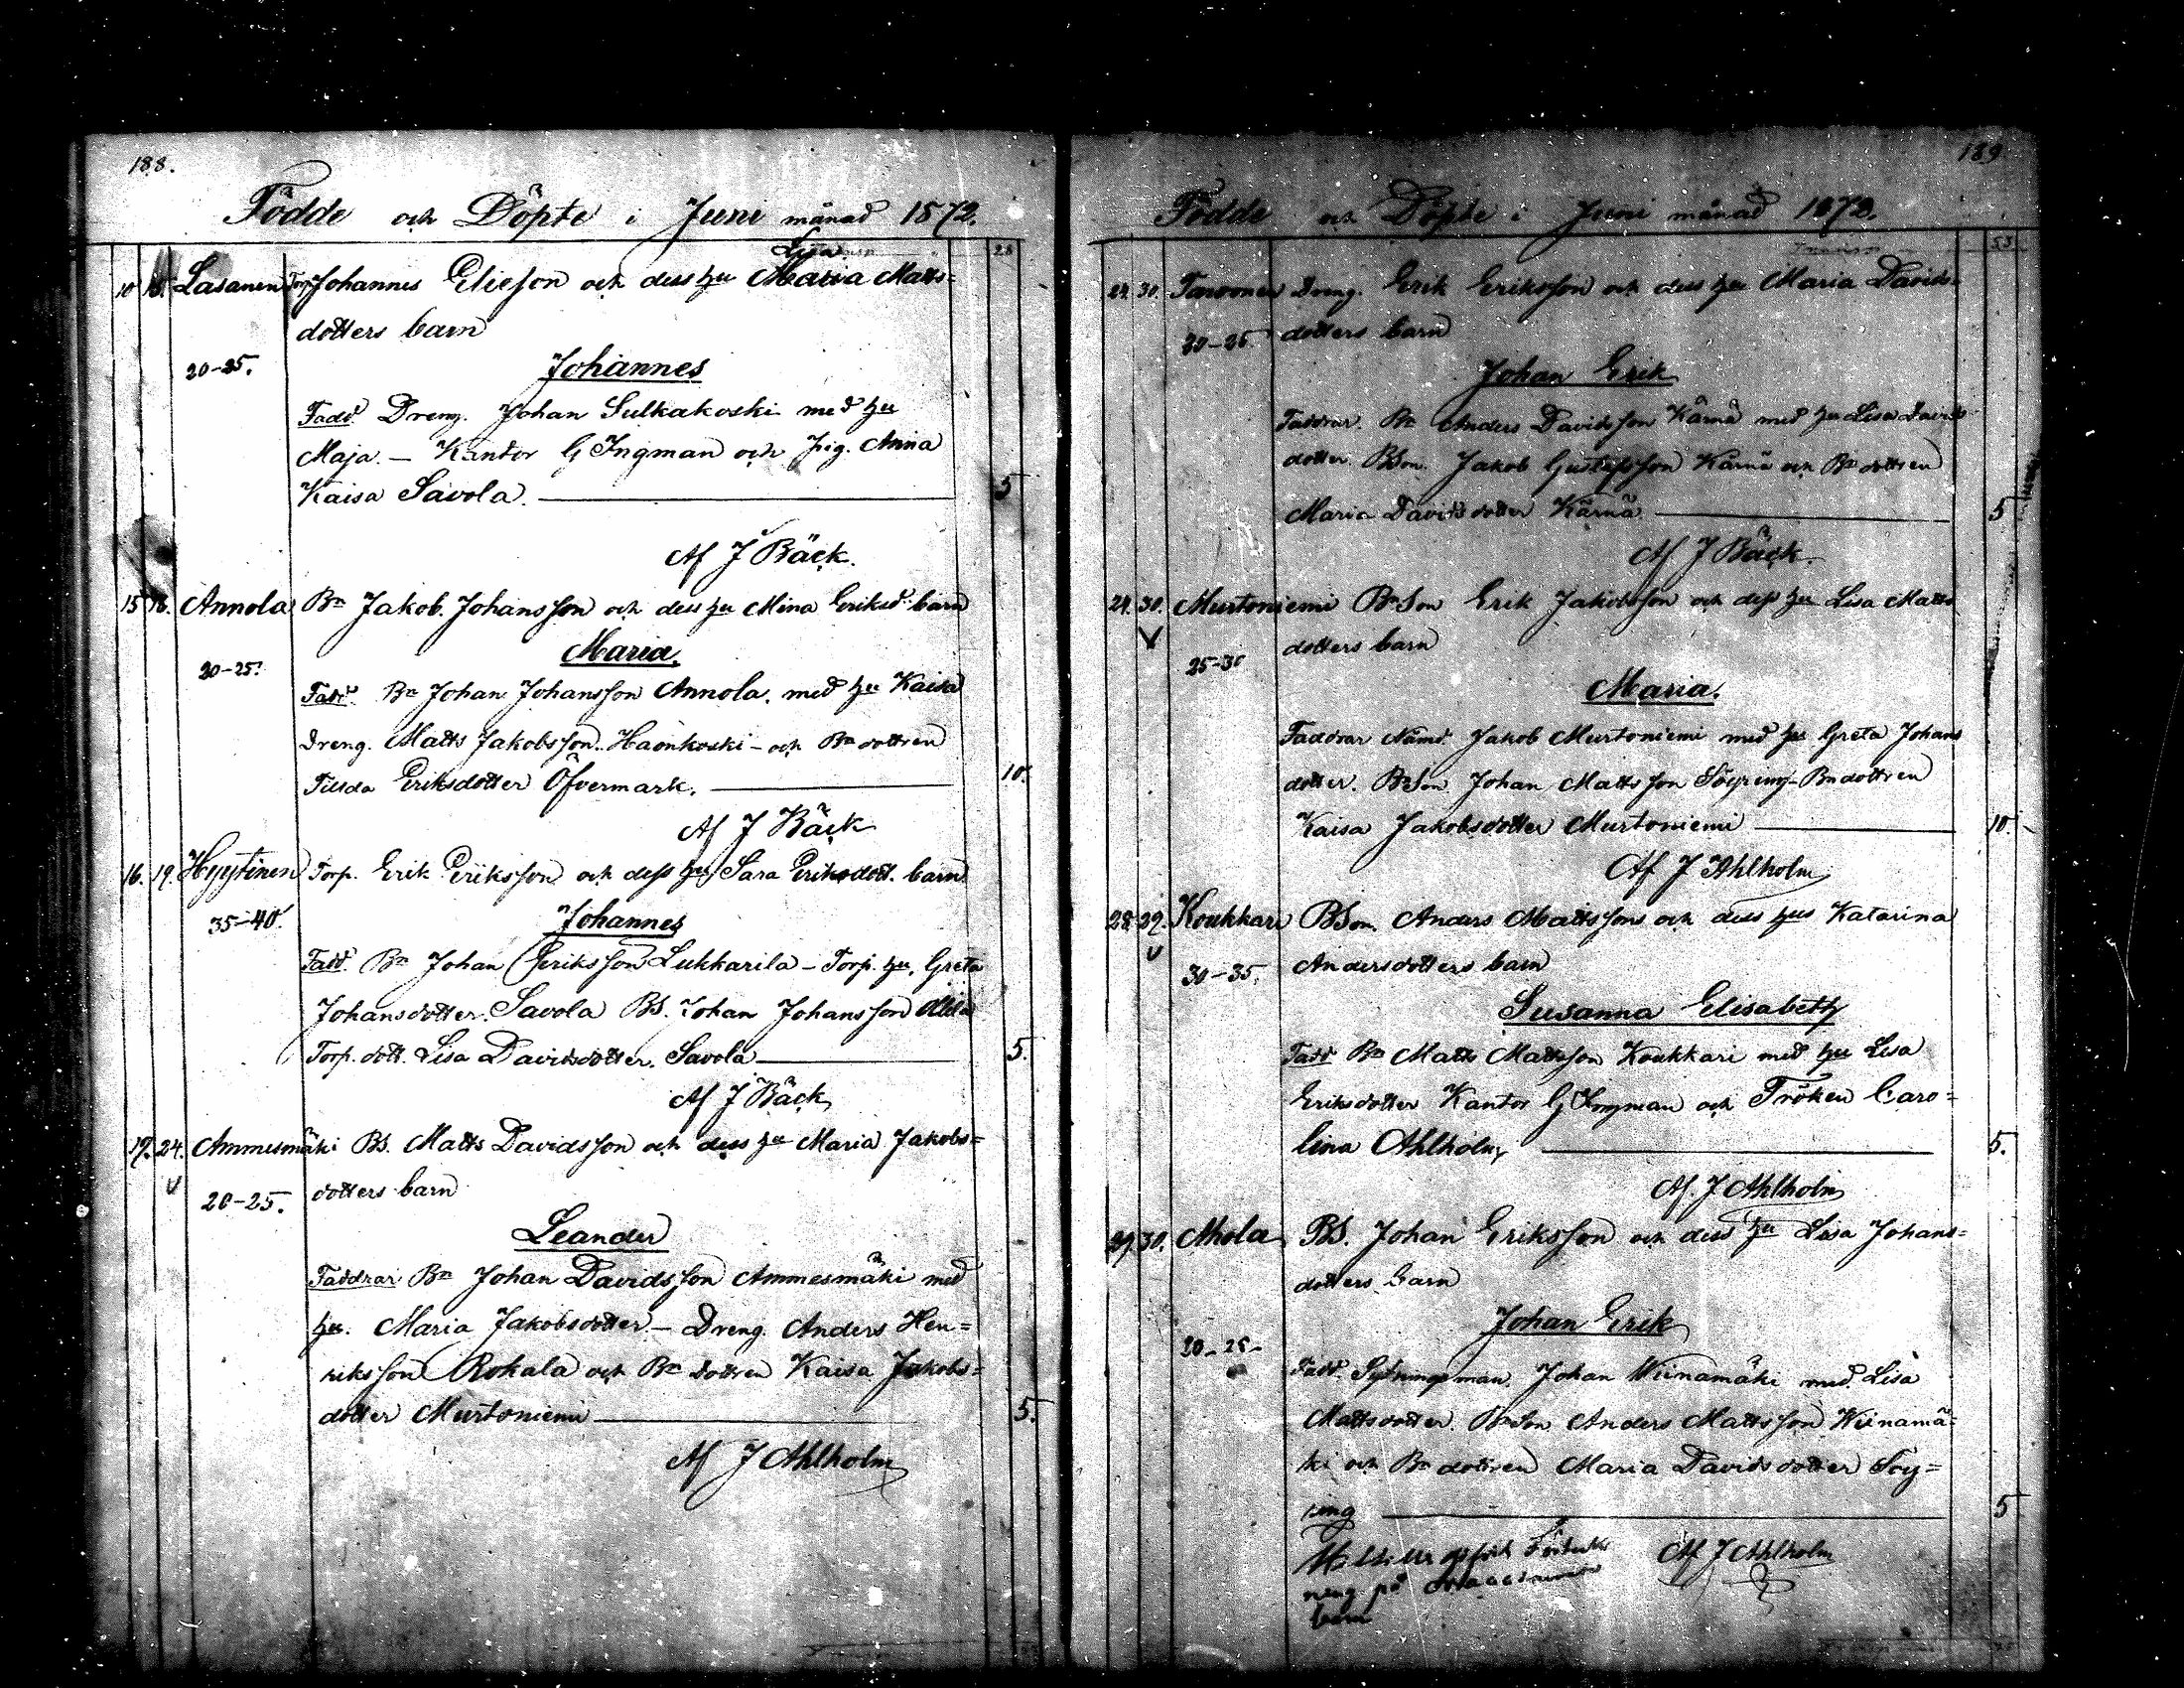 188.
Födde och Döpte i Juni månad 1872.
Lisa
10 15. Lasanen Torp. Johannes Elieson och dess hu Maria Matts=
dotters barn
20-25.
Johannes
Fadd. Dreng. Johan Sulkakoski med hu
Maja. — Kantor G Ingman och pig. Anna
Kaisa Savola. 5
Af J Bäck.
15 16. Annola Bn Jakob Johansson och dess hu Mina Eriksd. barn
Maria.
20-25.
Fadd. Bn Johan Johansson Annola. med hu Kaisa
Dreng. Matts Jakobsson. — och Bn dottren
Tilda Eriksdotter Öfvermark. 10.
Af J Bäck
16. 19. Hyytinen Torp. Erik Eriksson och dess hu Sara Eriksdott. barn
35-40.
Johannes
Fadd. Bn Johan Eriksson Lukkarila - Torp. hu. Greta
Johansdotter. Savola BS. Johan Johansson
Torp. dott. Lisa Davidsdotter. Savola 5.
Af J Bäck
17. 24. Ammesmäki BS. Matts Davidsson och dess hu Maria Jakobs=
dotters barn
20-25.
Leander
Faddrar Bn Johan Davidsson Ammesmäki med
hu. Maria Jakobsdotter. — Dreng. Anders Hen=
riksson Rokala och Bn dottren Kaisa Jakobs=
dotter Murtoniemi 5.
Af J Ahlholm
189
Födde och Döpte i Juni månad 1872.
24. 30. Dreng. Erik Eriksson och dess hu Maria Davids=
dotters barn
20-25
Johan Erik
Faddrar. Bn Anders Davidsson Kärnä med hu Lisa Davids
dotter. BSon. Jakob Gustafsson Kärnä och Bn dottren
Maria Davidsdotter Kärnä. 5
Af J Bäck.
24. 30. Murtoniemi BnSon Erik Jakobsson och dess hu Lisa Matts
dotters barn
25-30
Maria.
Faddrar Nämd. Jakob Murtoniemi med hu Greta Johans
dotter. BnSon. Johan Mattsson Söyring - Bn dottren
Kaisa Jakobsdotter Murtoniemi 10.
Af J Ahlholm
28 29. Koukkari BSon. Anders Mattssons och dess hus Katarina
Andersdotters barn
30-35.
Susanna Elisabeth
Fadd Bn Matts Mattsson Koukkari med hu Lisa
Eriksdotter Kantor G Ingman och Fröken Caro=
lina Ahlholm 5.
Af. J Ahlholm
29. 30. Ahola BS. Johan Eriksson och dess hu Lisa Johans=
dotters barn
Johan Erik
20-25-
Fadd. Sytningsman. Johan Wiinamäki med. Lisa
Mattsdotter. BnSon Anders Mattsson Wiinamä=
ki och Bn dottren Maria Davidsdotter Söy=
ring 5
Af J Ahlholm
barn